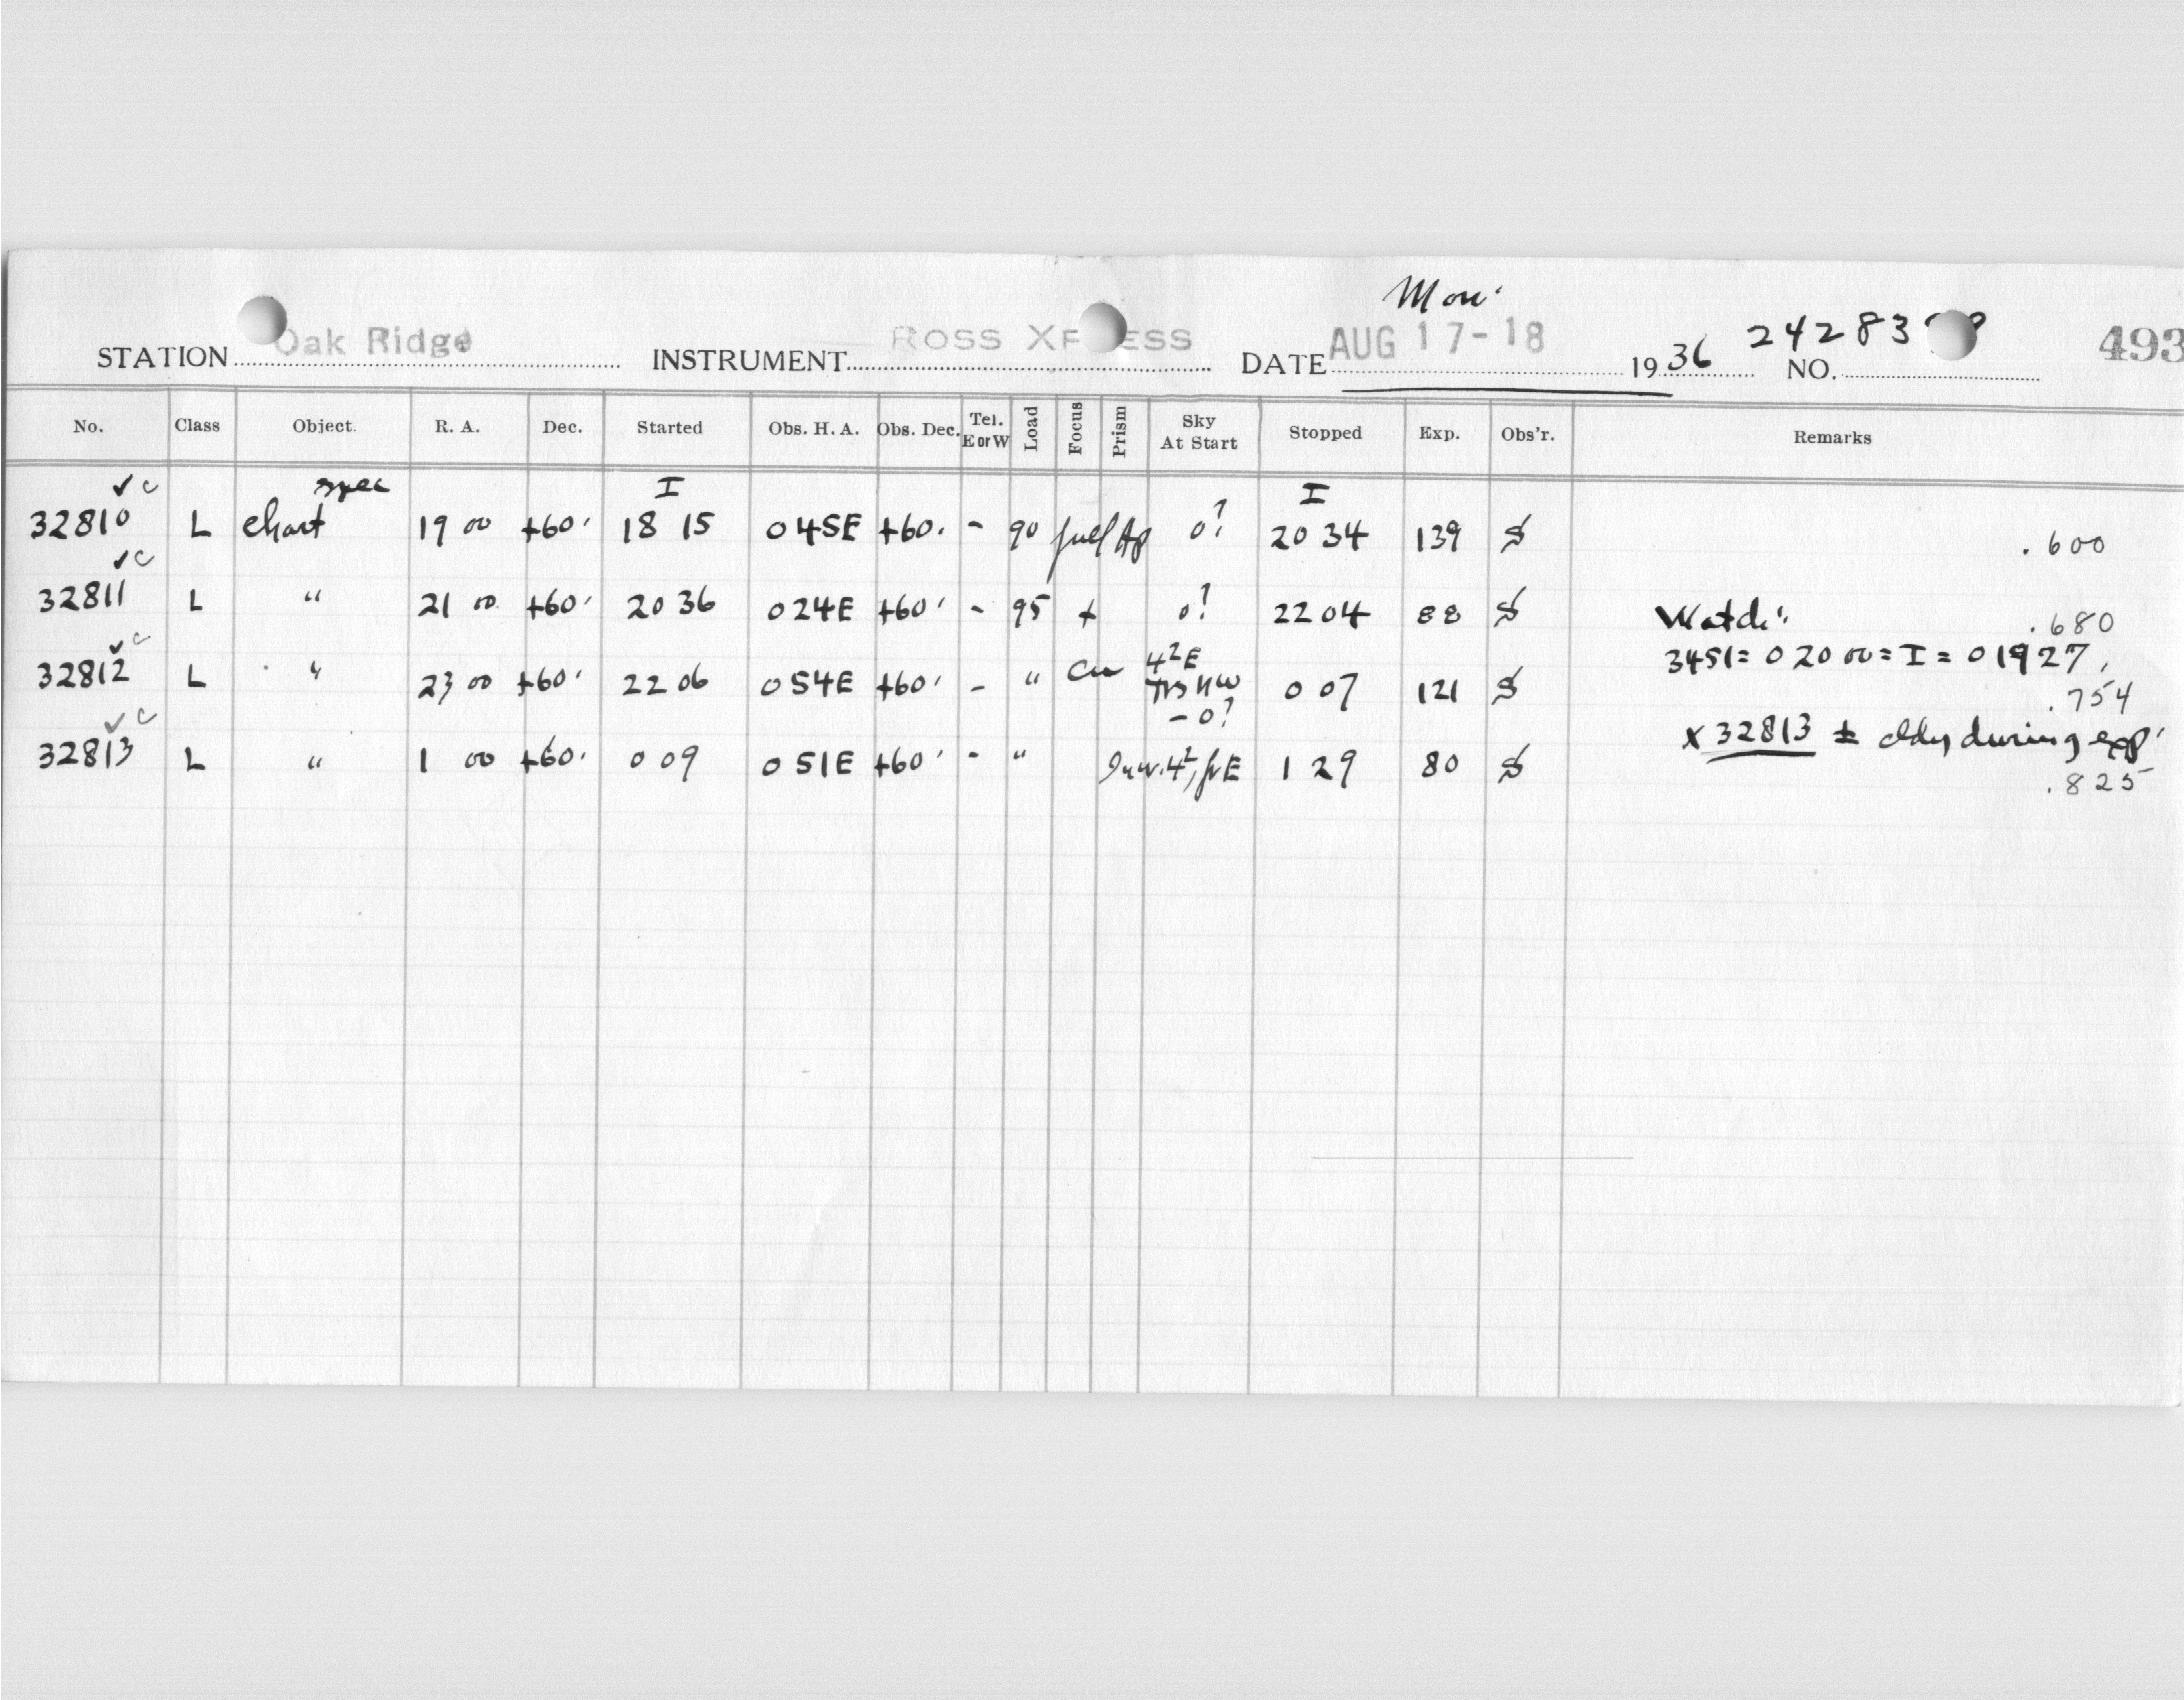 Mon.
STATION Oak Ridge INSTRUMENT ROSS DATE AUG 17-18 1936 NO. 24283 493
No. Class Object. R. A. Dec. Started Obs. H. A. Obs. Dec. Tel. E or W Load Focus Prism Sky At Start Stopped Exp. Obs'r. Remarks
✓ c spec I I
32810 L chart 19 00 +60. 18 15 0 45E +60. - 90 0? 20 34 139 S .600
✓ c
32811 L " 21 00 +60. 20 36 0 24E +60. - 95 + 0? 22 04 88 S Watch: .680
3451 = 0 20 00 = I = 0 19 27.
✓ c
32812 L " 23 00 +60. 22 06 0 54E +60. - " 4²E
- 0? 0 07 121 S .754
✓ c
32813 L " 1 00 +60. 0 09 0 51E +60. - " 1 29 80 S x 32813 ± cldy during exp.
.825